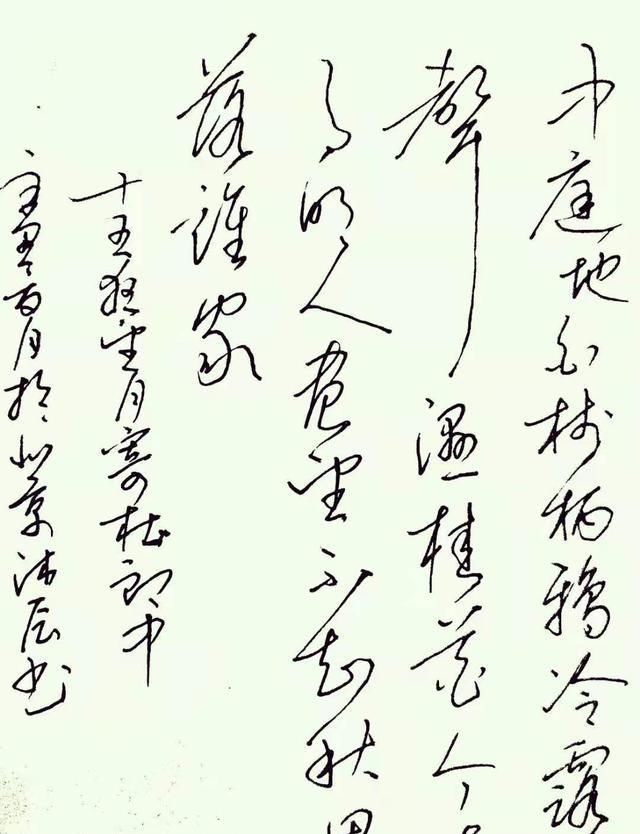 中庭地白树栖鸦冷露
聲湿桂花今
月明人尽望不知秋
落谁家
十五夜望月寄杜郎中
月於北京 书